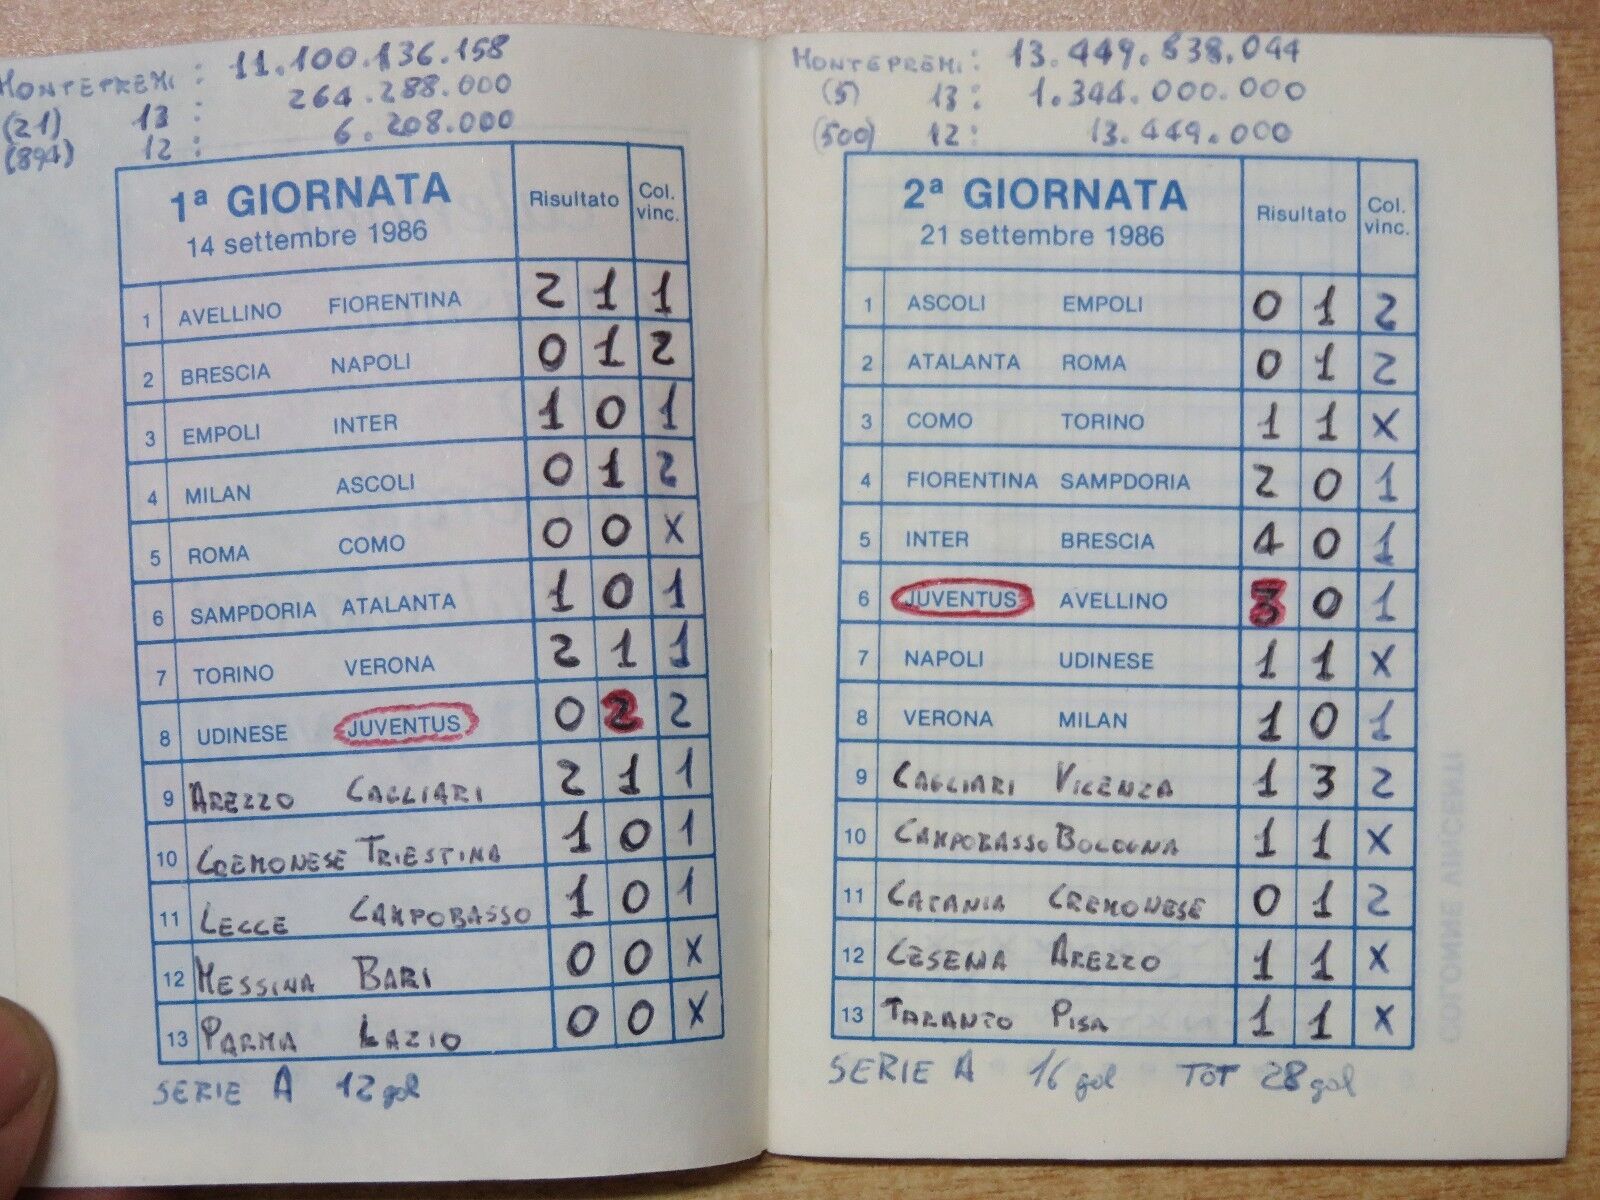 MONTEPREMI : 11.100.136.158
(21) 13 : 264.288.000
(894) 12 : 6.208.000
1ª GIORNATA Risultato Col. vinc.
14 settembre 1986
1 AVELLINO FIORENTINA 2 1 1
2 BRESCIA NAPOLI 0 1 2
3 EMPOLI INTER 1 0 1
4 MILAN ASCOLI 0 1 2
5 ROMA COMO 0 0 X
6 SAMPDORIA ATALANTA 1 0 1
7 TORINO VERONA 2 1 1
8 UDINESE JUVENTUS 0 2 2
9 AREZZO CAGLIARI 2 1 1
10 CREMONESE TRIESTINA 1 0 1
11 LECCE CAMPOBASSO 1 0 1
12 MESSINA BARI 0 0 X
13 PARMA LAZIO 0 0 X
SERIE A 12 gol
MONTEPREMI : 13.449.838.044
(5) 13 : 1.344.000.000
(500) 12 : 13.449.000
2ª GIORNATA Risultato Col. vinc.
21 settembre 1986
1 ASCOLI EMPOLI 0 1 2
2 ATALANTA ROMA 0 1 2
3 COMO TORINO 1 1 X
4 FIORENTINA SAMPDORIA 2 0 1
5 INTER BRESCIA 4 0 1
6 JUVENTUS AVELLINO 3 0 1
7 NAPOLI UDINESE 1 1 X
8 VERONA MILAN 1 0 1
9 CAGLIARI VICENZA 1 3 2
10 CAMPOBASSO BOLOGNA 1 1 X
11 CATANIA CREMONESE 0 1 2
12 CESENA AREZZO 1 1 X
13 TARANTO PISA 1 1 X
SERIE A 16 gol TOT 28 gol
COLONNE VINCENTI